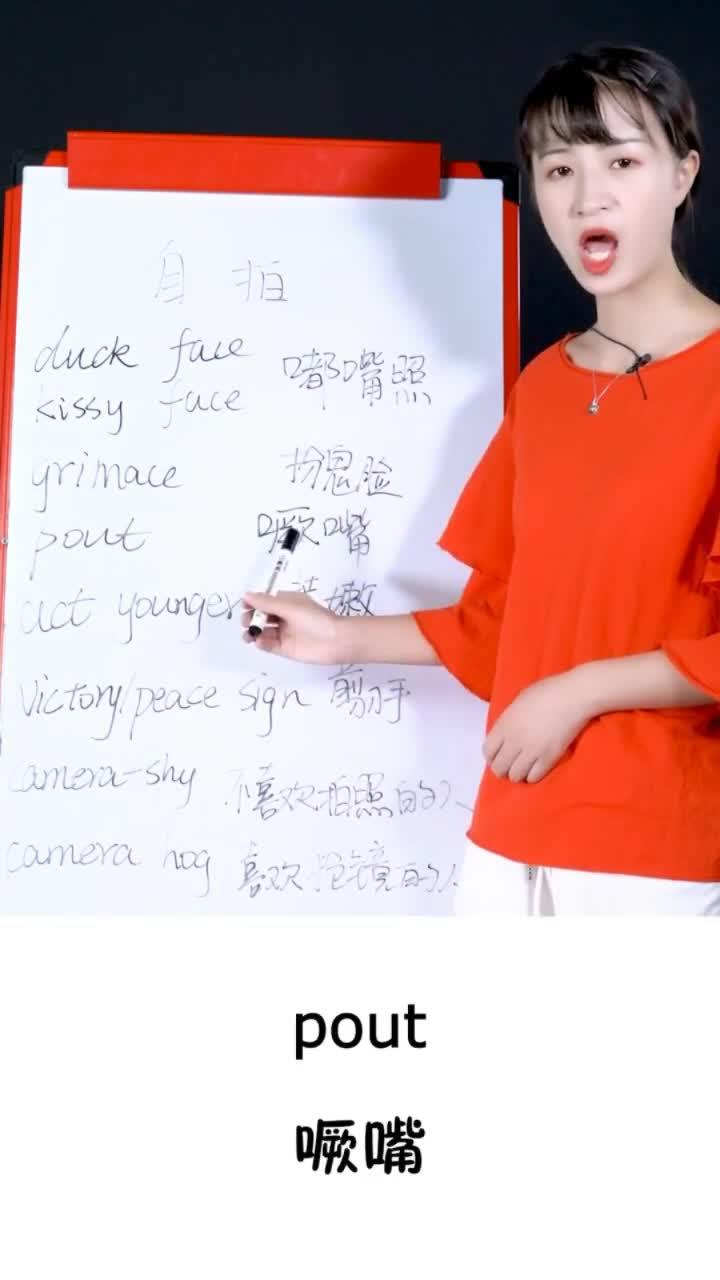 自拍
duck face
kissy face 嘟嘴照
grimace 扮鬼脸
pout 噘嘴
act younger 嫩
Victory/peace sign 剪刀手
camera-shy 不喜欢拍照的人
camera hog 喜欢抢镜的人
pout
噘嘴